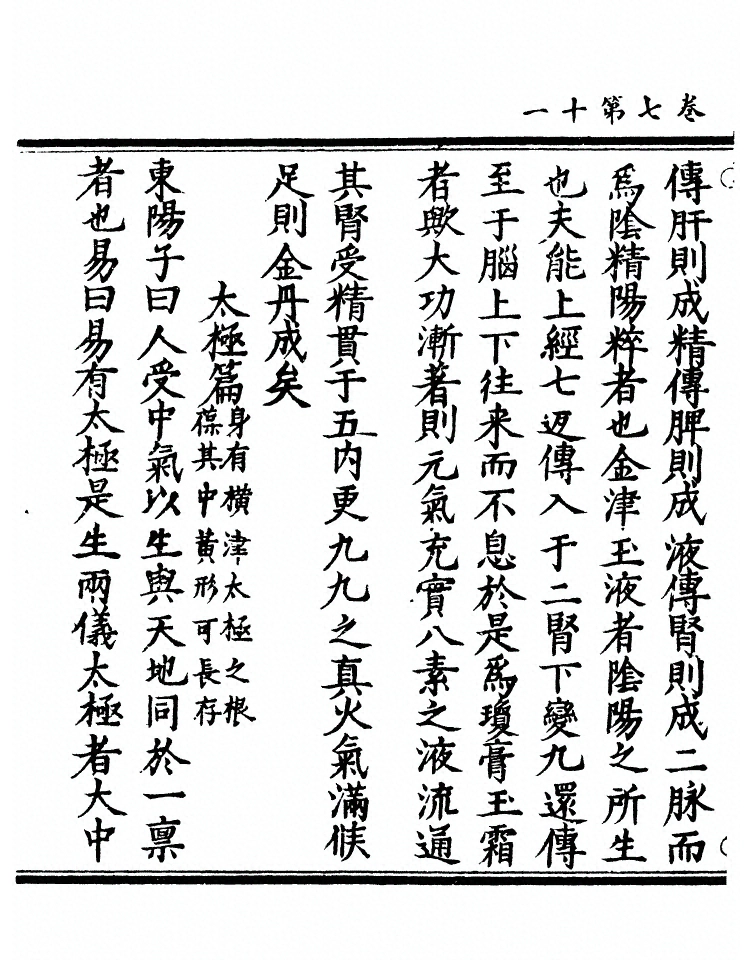 卷七第十一
傳肝則成精傳脾則成液傳腎則成二脉而
爲陰精陽粹者也金津玉液者陰陽之所生
也夫能上經七返傳入于二腎下變九還傳
至于腦上下往来而不息於是爲瓊膏玉霜
者歟大功漸著則元氣充實八素之液流通
其腎受精貫于五内更九九之真火氣滿候
足則金丹成矣
太極篇
身有横津太極之根
葆其中黄形可長存
東陽子曰人受中氣以生與天地同於一禀
者也易曰易有太極是生兩儀太極者大中